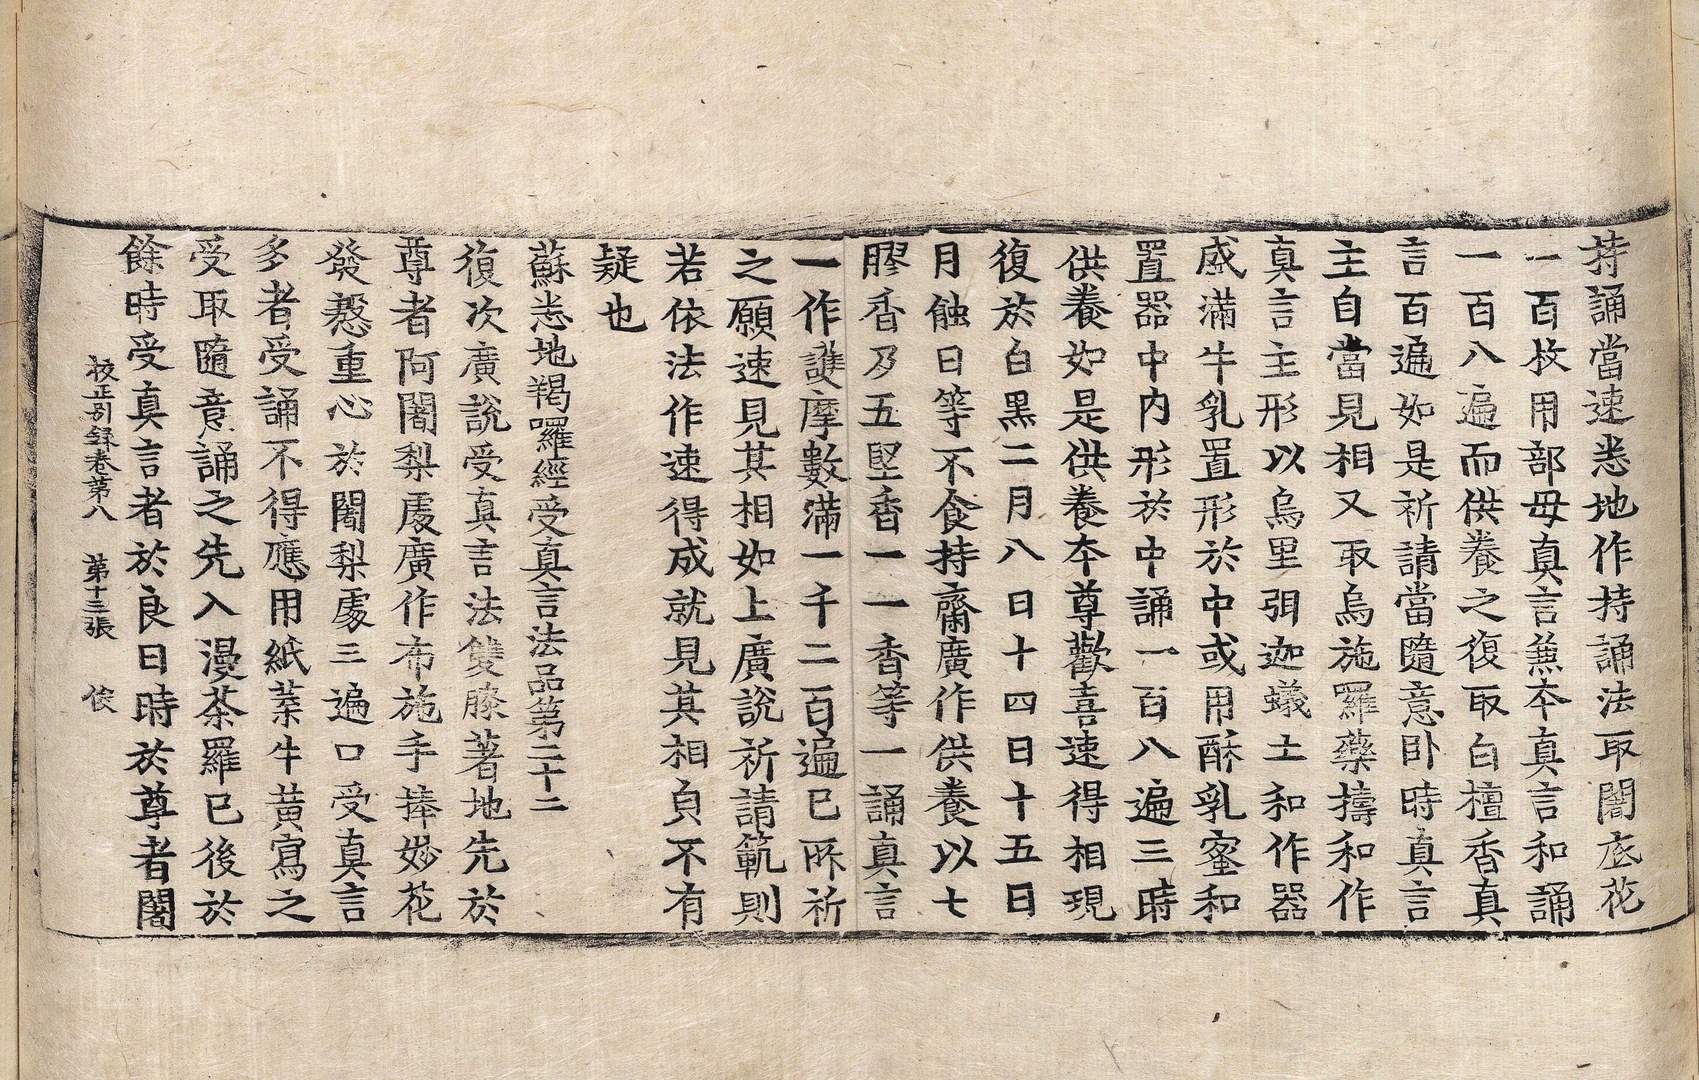 持誦當速悉地作持誦法取闍底花
一百枚用部母真言兼本真言和誦
一百八遍而供養之復取白檀香真
言百遍如是祈請當隨意卧時真言
主自當見相又取烏施羅藥擣和作
真言主形以烏里弭迦蟻土和作器
盛滿牛乳置形於中或用酥乳蜜和
置器中內形於中誦一百八遍三時
供養如是供養本尊歡喜速得相現
復於白黑二月八日十四日十五日
月蝕日等不食持齋廣作供養以七
膠香及五堅香一一香等一誦真言
一作護摩數滿一千二百遍已所祈
之願速見其相如上廣說祈請範則
若依法作速得成就見其相皃不有
疑也
蘇悉地羯囉經受真言法品第二十二
復次廣說受真言法雙膝著地先於
尊者阿闍梨處廣作布施手捧妙花
發慇重心於闍梨處三遍口受真言
多者受誦不得應用紙葉牛黃寫之
受取隨意誦之先入漫荼羅已後於
餘時受真言者於良日時於尊者闍
校正別錄卷第八　第十三張　俟